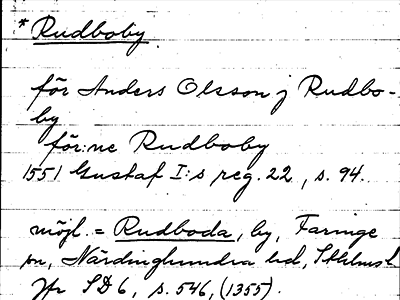 * Rudboby.
för Anders Olsson j Rudbo-
by
för:ne Rudboby
1551 Gustaf I:s reg. 22, s. 94.
möjl. = Rudboda, by, Faringe
sn, Närdinghundra hd, Sthlms l.
Jfr SD 6, s. 546, (1355).